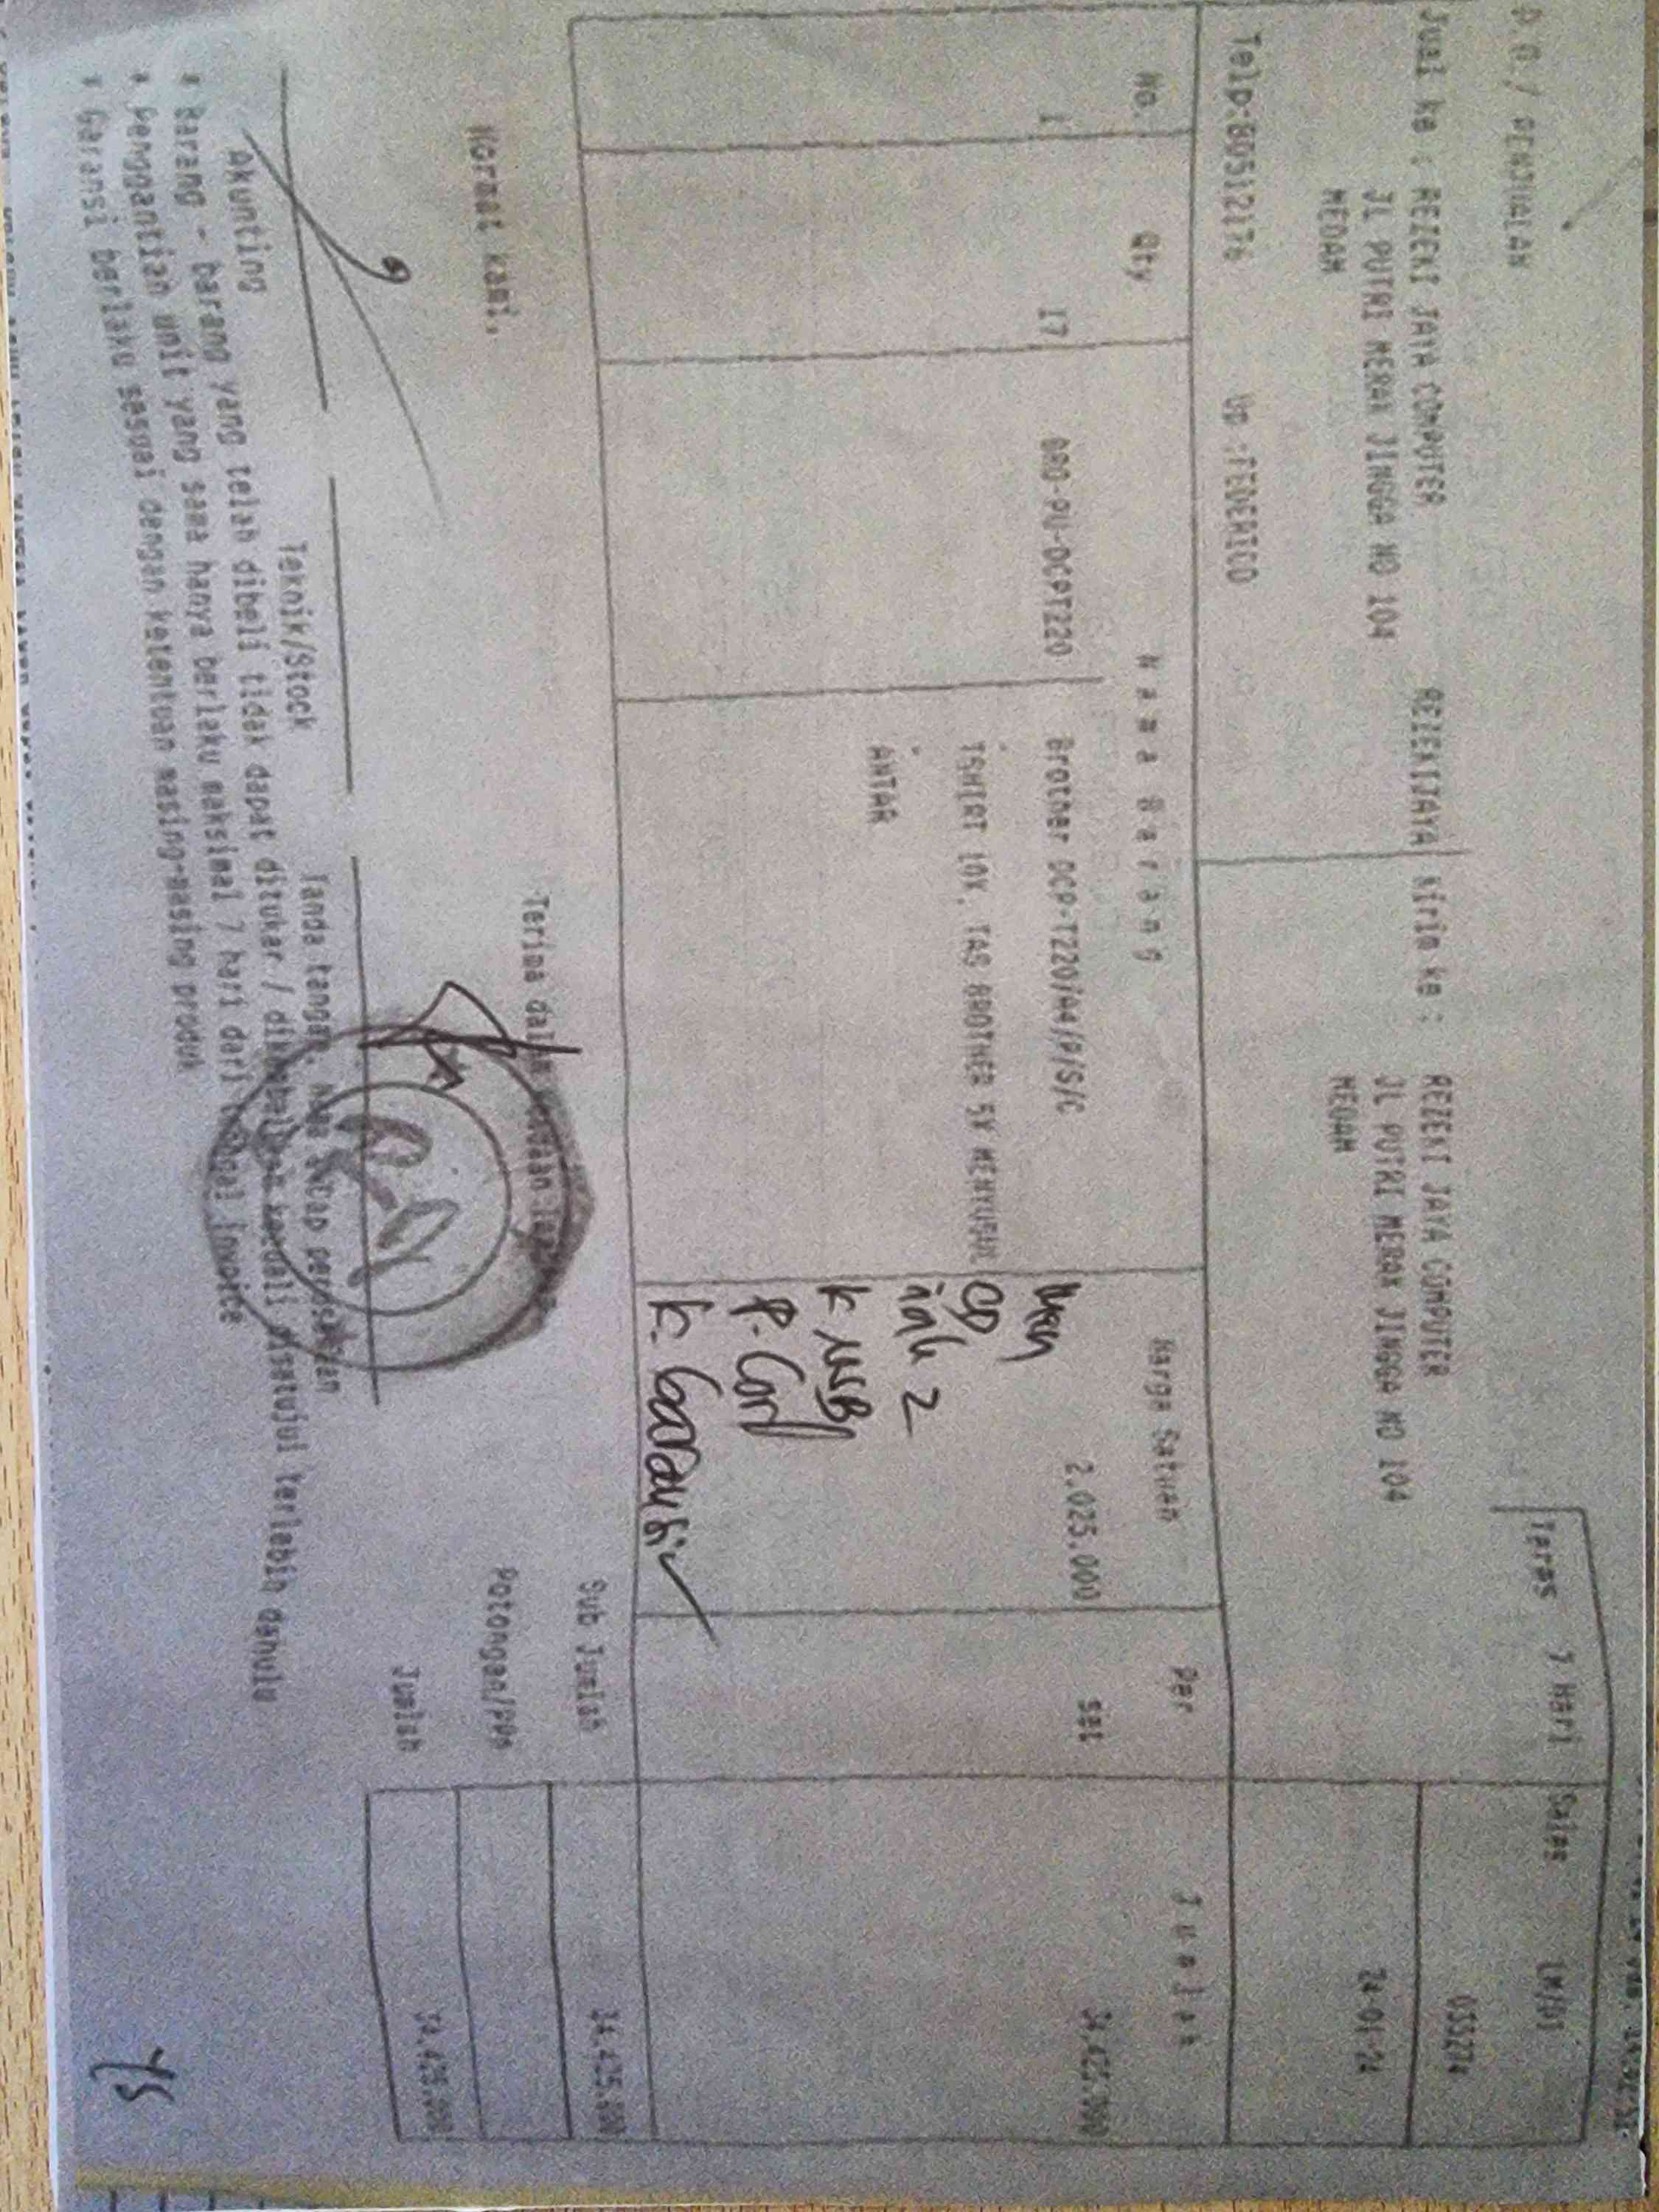 D.O./ PENJUALAN
Terms 7 Hari Sales LM/DJ
Jual ke : REZEKI JAYA COMPUTER REZEKIJAYA
JL PUTRI MERAK JINGGA NO 104
MEDAN
Kirim ke : REZEKI JAYA COMPUTER
JL PUTRI MERAK JINGGA NO 104
MEDAN
24-01-24
Up :FEDERICO
No. Qty Nama Barang Harga Satuan Per Jumlah
1 17 BRO-PU-DCPT220 Brother DCP-T220/A4/P/S/C 2.025.000 set 34.425.000
TSHIRT 10X, TAS BROTHER 5X MENYUSUL
ANTAR
ink 2
Sub Jumlah 34.425.000
Potongan/Pos
Jumlah 34.425.000
Hormat kami,
Terima dalam keadaan
Akunting
Teknik/Stock
* Barang - barang yang telah dibeli tidak dapat ditukar / dikembalikan kecuali disetujui terlebih dahulu
* Penggantian unit yang sama hanya berlaku maksimal 7 hari dari tanggal invoice
* Garansi berlaku sesuai dengan ketentuan masing-masing produk